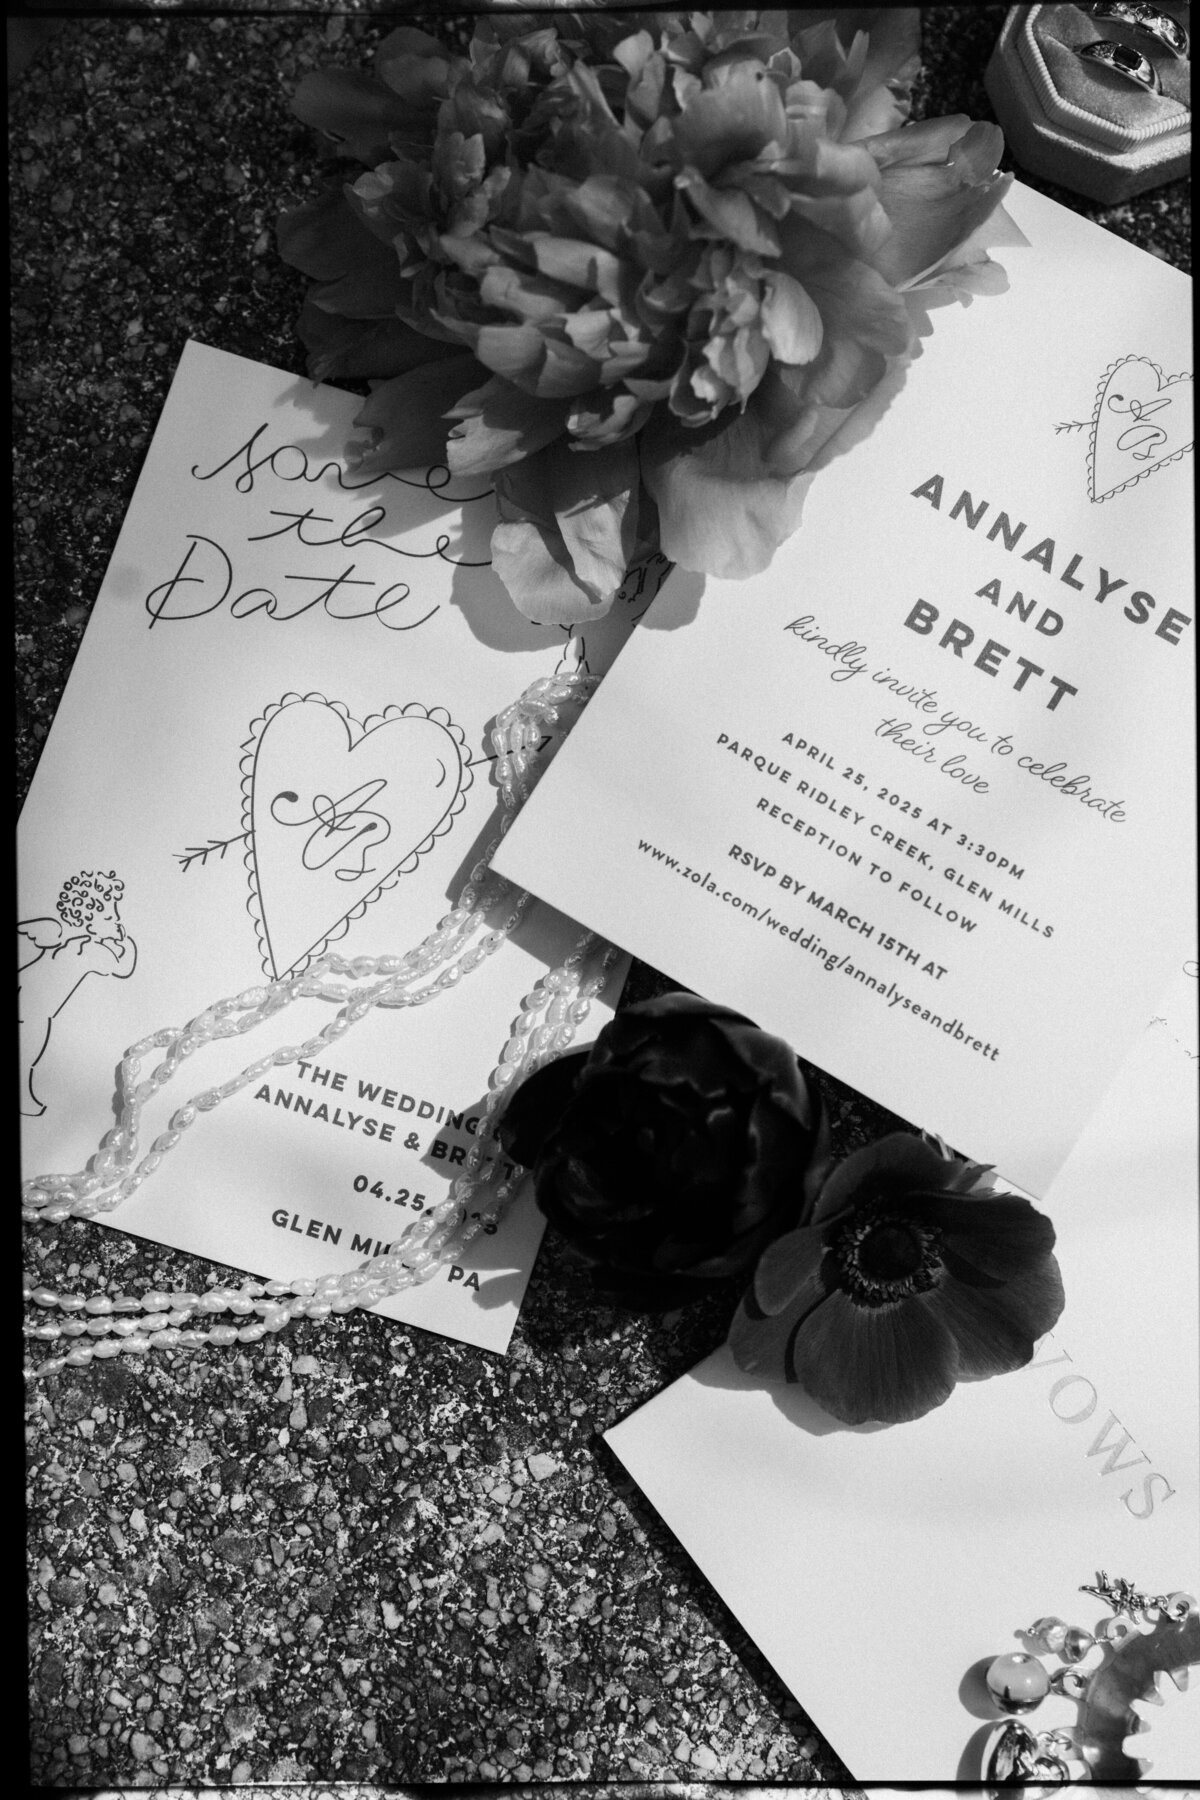 save
the
Date
AB
THE WEDDING
ANNALYSE & BRETT
04.25.2025
GLEN MILLS, PA
AB
ANNALYSE
AND
BRETT
kindly invite you to celebrate
their love
APRIL 25, 2025 AT 3:30PM
PARQUE RIDLEY CREEK, GLEN MILLS
RECEPTION TO FOLLOW
RSVP BY MARCH 15TH AT
www.zola.com/wedding/annalyseandbrett
VOWS